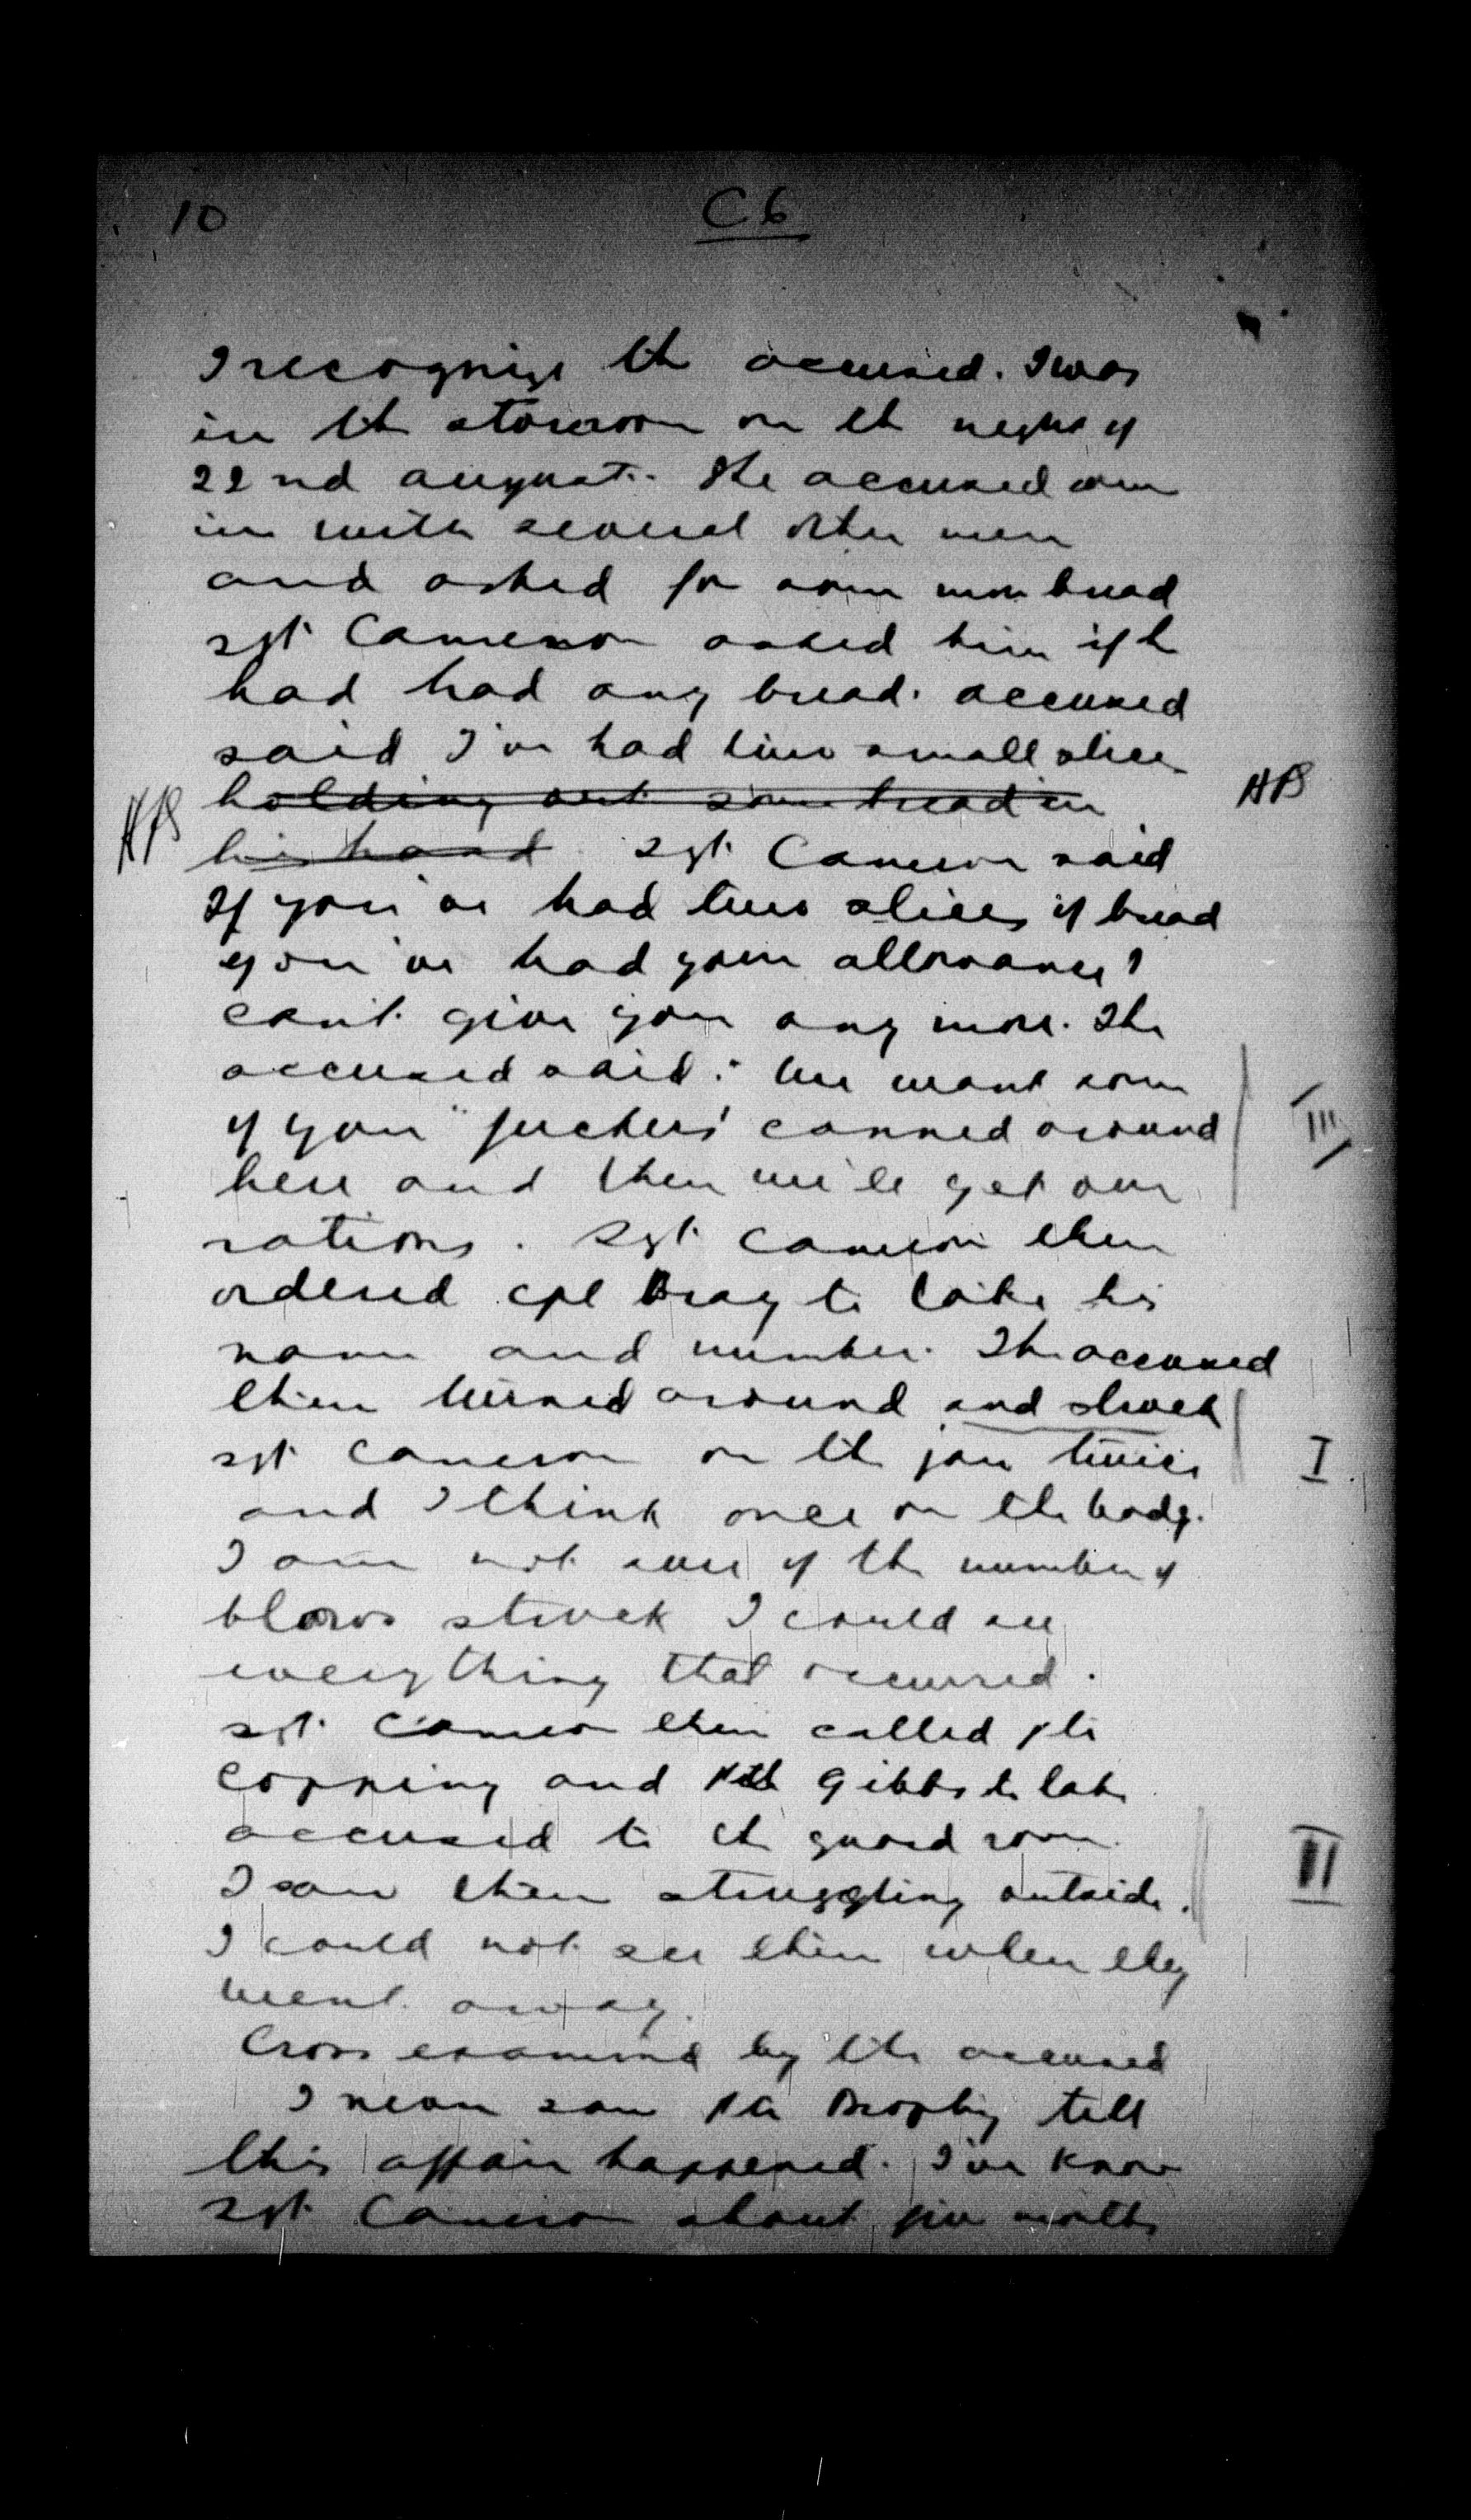 10
C6
I recognize the accused. I was
in the storeroom on the night of
22nd august. The accused came
in with several other men
and asked for some more bread
sgt Cameron asked him if he
had had any bread. accused
said I've had two small slices
holding out some bread in
his hand. Sgt. Cameron said
If you've had two slices of bread
you've had your allowance I
can't give you any more. The
accused said: "We want some
of you "fuckers" canned around
here and then we'll get our
rations. Sgt. Cameron then
ordered cpl Bray to take his
name and number. The accused
then turned around and struck
sgt Cameron on the jaw twice
and I think once on the body.
I am not sure of the number of
blows struck I could see
everything that occurred.
sgt. Cameron then called pte
Copping and Pte Gibbs to take
accused to the guard room.
I saw them struggling outside.
I could not see them when they
went away.
Cross examined by the accused
I never saw Pte Brophy till
this affair happened. I've know
Sgt. Cameron about five months
HB
HB
III
I
II